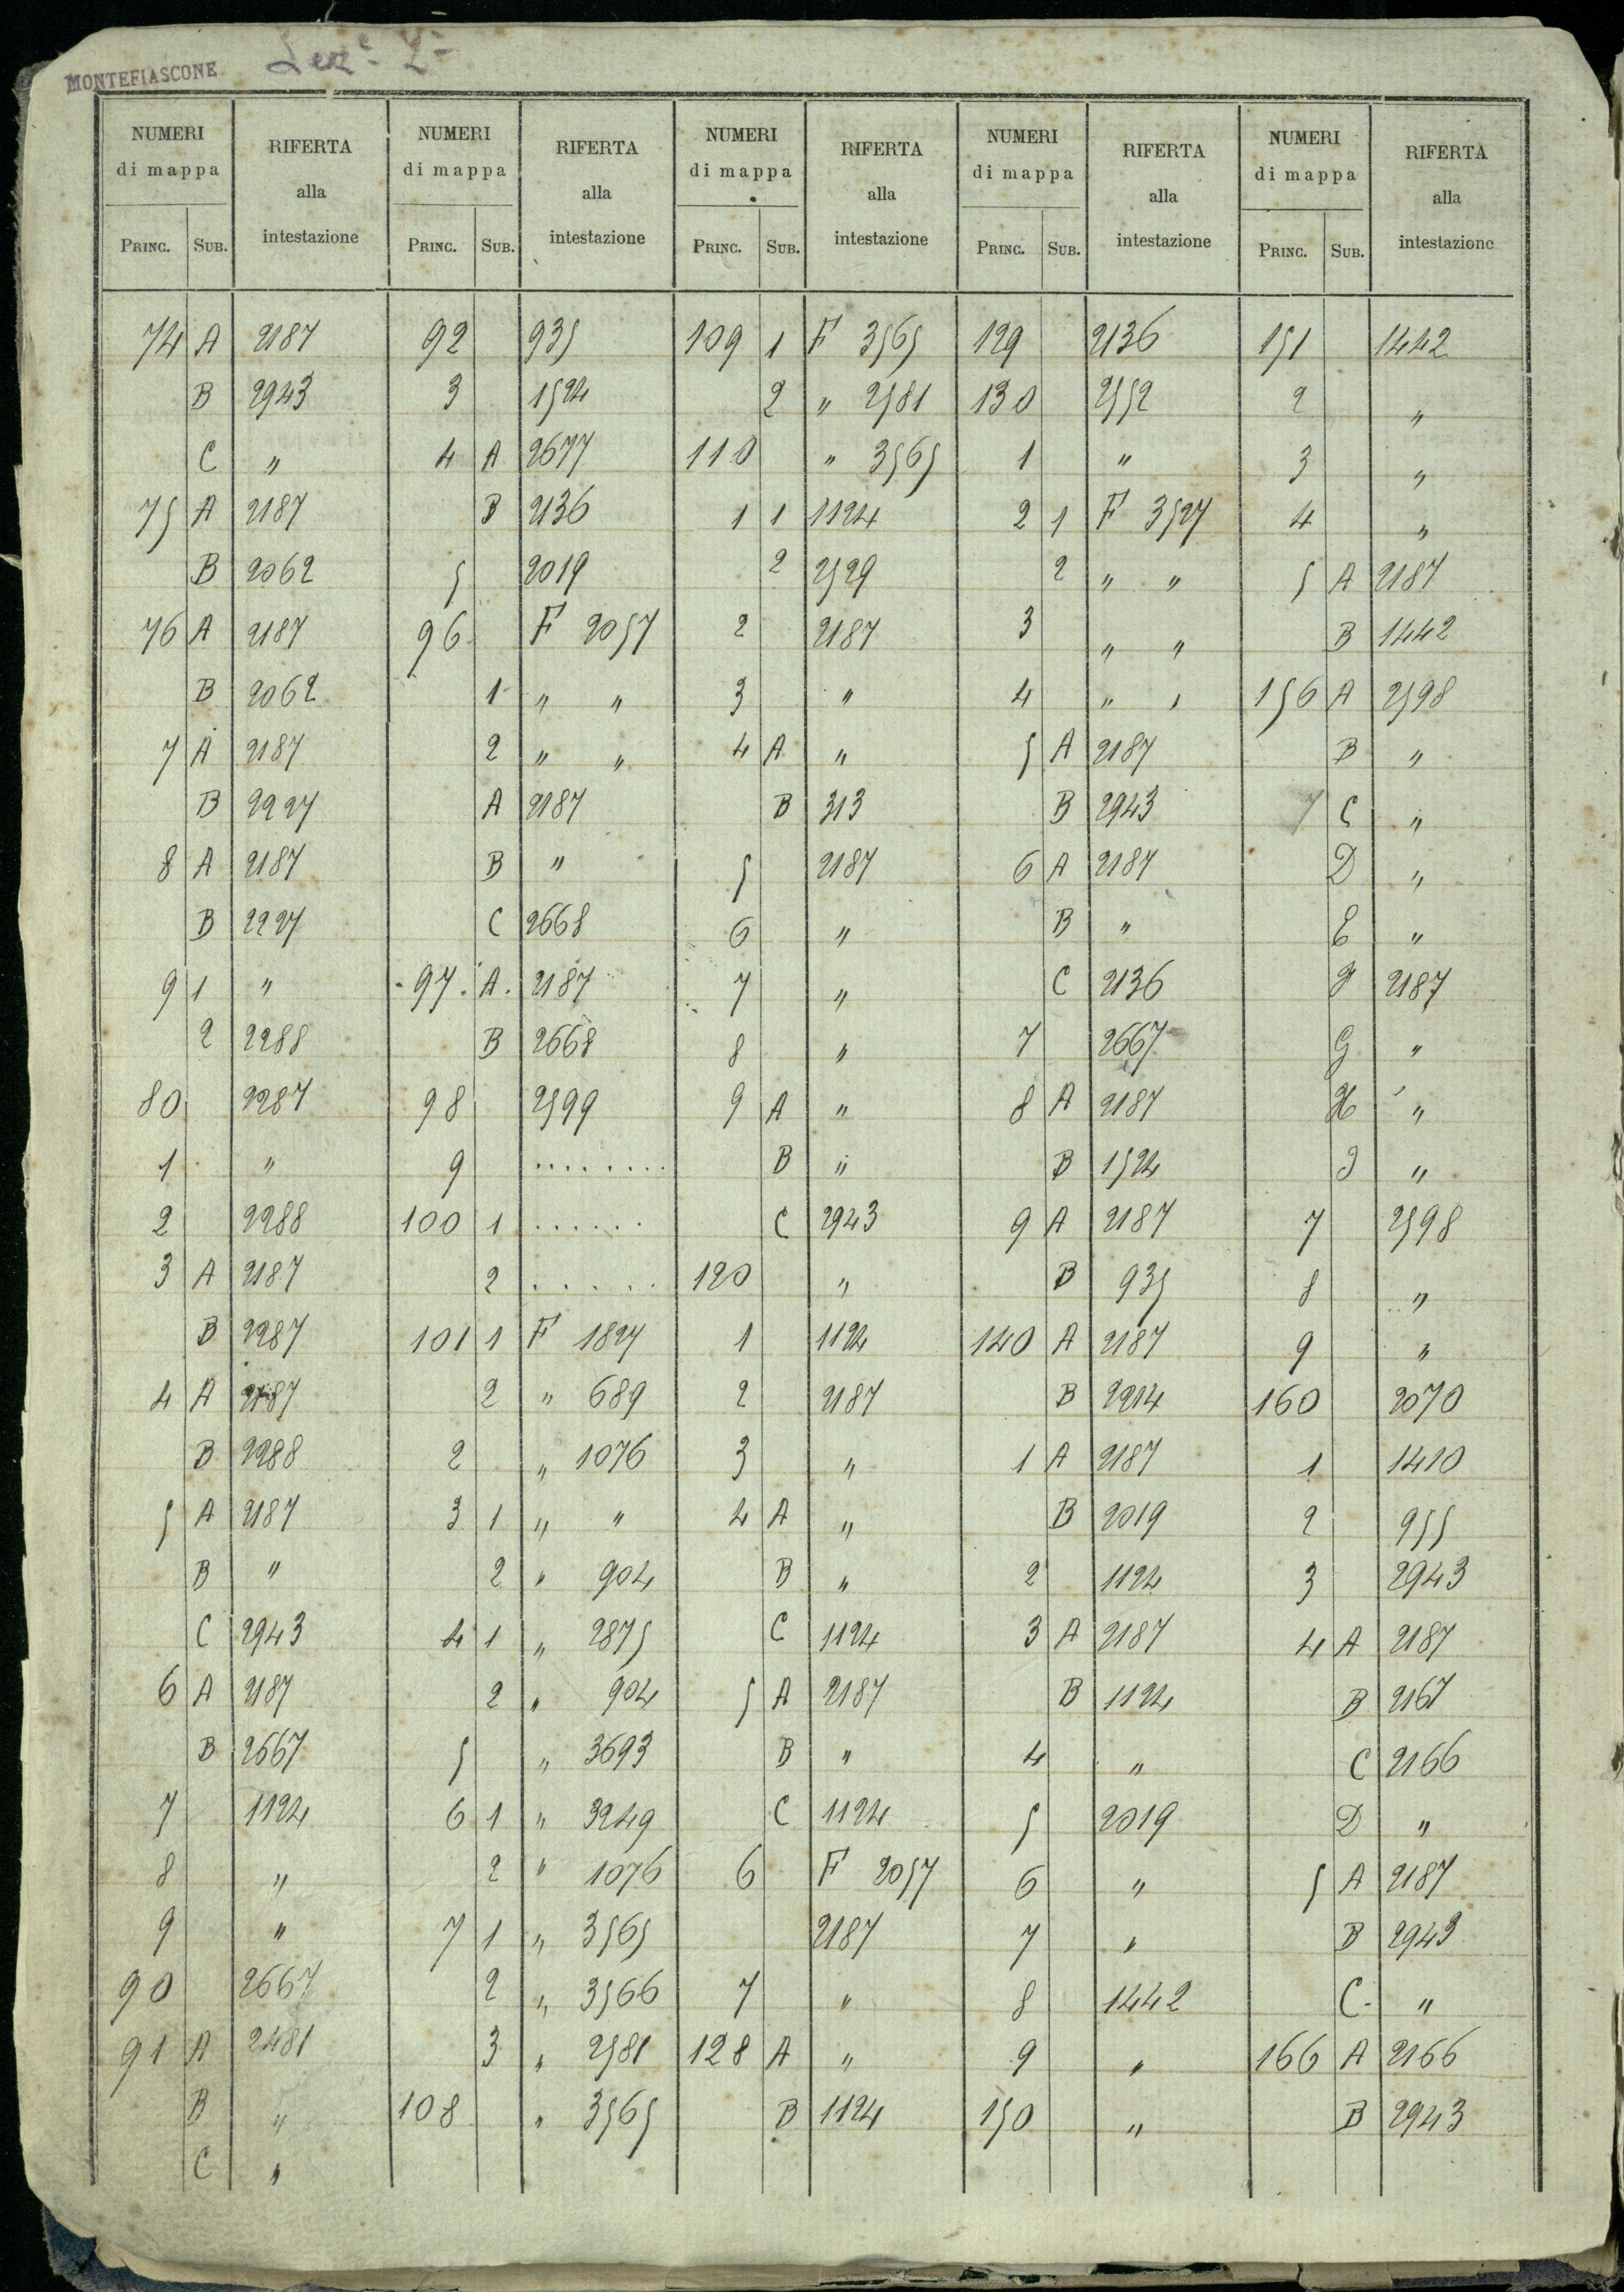 MONTEFIASCONE Sez.e 2a
NUMERI di mappa RIFERTA alla intestazione NUMERI di mappa RIFERTA alla intestazione NUMERI di mappa RIFERTA alla intestazione NUMERI di mappa RIFERTA alla intestazione NUMERI di mappa RIFERTA alla intestazione
PRINC. SUB. PRINC. SUB. PRINC. SUB. PRINC. SUB. PRINC. SUB.
74 A 2187 92 935 109 1 F 3565 129 2136 151 1442
B 2943 3 1524 2 " 2581 130 2552 2 "
C " 4 A 2677 110 " 3565 1 " 3 "
75 A 2187 B 2136 1 1 1124 2 1 F 3527 4 "
B 2062 5 2019 2 2529 2 " " 5 A 2187
76 A 2187 96 F 2057 2 2187 3 " " B 1442
B 2062 1 " " 3 " 4 " " 156 A 2598
7 A 2187 2 " " 4 A " 5 A 2187 B "
B 2227 A 2187 B 313 B 2943 C "
8 A 2187 B " 5 2187 6 A 2187 D "
B 2227 C 2668 6 " B " E "
9 1 " 97. A. 2187 7 " C 2136 F 2187
2 2288 B 2668 8 " 7 2667 G "
80 2287 98 2599 9 A " 8 A 2187 H "
1 " 9 ........ B " B 1524 I "
2 2288 100 1 ...... C 2943 9 A 2187 7 2598
3 A 2187 2 ..... 120 " B 935 8 "
B 2287 101 1 F 1827 1 1124 140 A 2187 9 "
4 A 2187 2 " 689 2 2187 B 2214 160 2070
B 2288 2 " 1076 3 " 1 A 2187 1 1410
5 A 2187 3 1 " " 4 A " B 2019 2 955
B " 2 " 904 B " 2 1124 3 2943
C 2943 4 1 " 2875 C 1124 3 A 2187 4 A 2187
6 A 2187 2 " 904 5 A 2187 B 1124 B 2167
B 2667 5 " 3693 B " 4 " C 2166
7 1124 6 1 " 3249 C 1124 5 2019 D "
8 " 2 " 1076 6 F 2057 6 " 5 A 2187
9 " 7 1 " 3565 2187 7 " B 2943
90 2667 2 " 3566 7 " 8 1442 C "
91 A 2481 3 " 2581 128 A " 9 " 166 A 2166
B " 108 " 3565 B 1124 150 " B 2943
C "